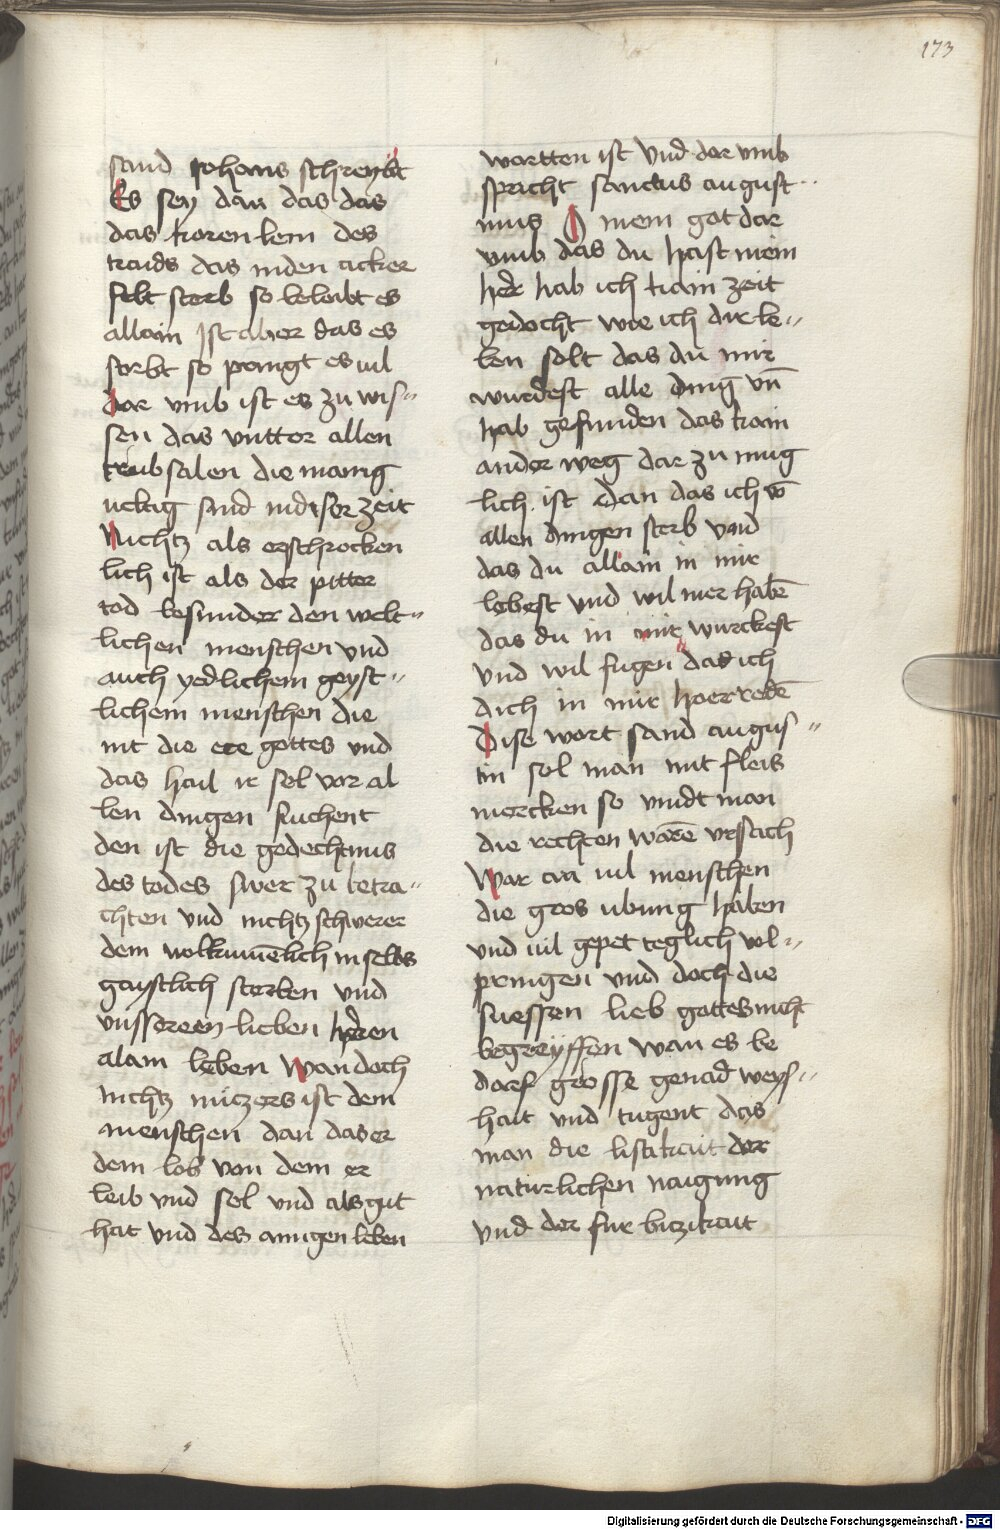 173
sand Johans schreybt
Es sey dan das das
das koren kern des
traids das inden acker
felt sterb so beleibt es
allain Ist aber das es
sterbt so pringt es vil
dar vmb ist es zu wis-
sen das vntter allen
trubsalen die manig
ueltig sind indiser zeit
Nichtz als erschrocken
lich ist als der pitter
tod besunder den welt-
lichen menschen vnd
auch yedlichem geyst-
lichem menschen die
nit die ere gottes vnd
das hail ir sel vor al
len dingen suchent
den ist die gedechtnus
des todes swer zu betra-
chten vnd nichtz schwerer
dem uolkumēlich in selbs
gaystlich sterben vnd
vnssereen lieben heren
alain leben Wan doch
nichtz nuczers ist dem
menschen dan das er
dem lob von dem er
leib vnd sel vnd als gut
hat vnd des ainigen leben
wartten ist vnd dar vmb
spricht sanctus august-
inus O mein got dar
vmb das du hast mein
her hab ich kain zeit
gedocht wie ich dir le-
ben solt das du mir
wurdest alle ding vn̄
hab gefunden das kain
ander weg dar zu mug
lich ist Dan das ich vō
allen dingen sterb vnd
das du allain in mir
lebest vnd wil mer habē
das du in mir wurckest
vnd wil fugen das ich
dich in mir hoer redē
Dise wort sand augus-
tin sol man mit fleis
mercken so vindt man
die rechten warē vrsach
War an vil menschen
die gros ubung haben
vnd vil gepet teglich vol-
pringen vnd doch die
suessen lieb gottes nicht
begreyffen wan es be
darf grosse genad weys-
hait vnd tugent das
man die listikait der
naturlichen naigung
vnd der fur biczikait
Digitalisierung gefördert durch die Deutsche Forschungsgemeinschaft - DFG